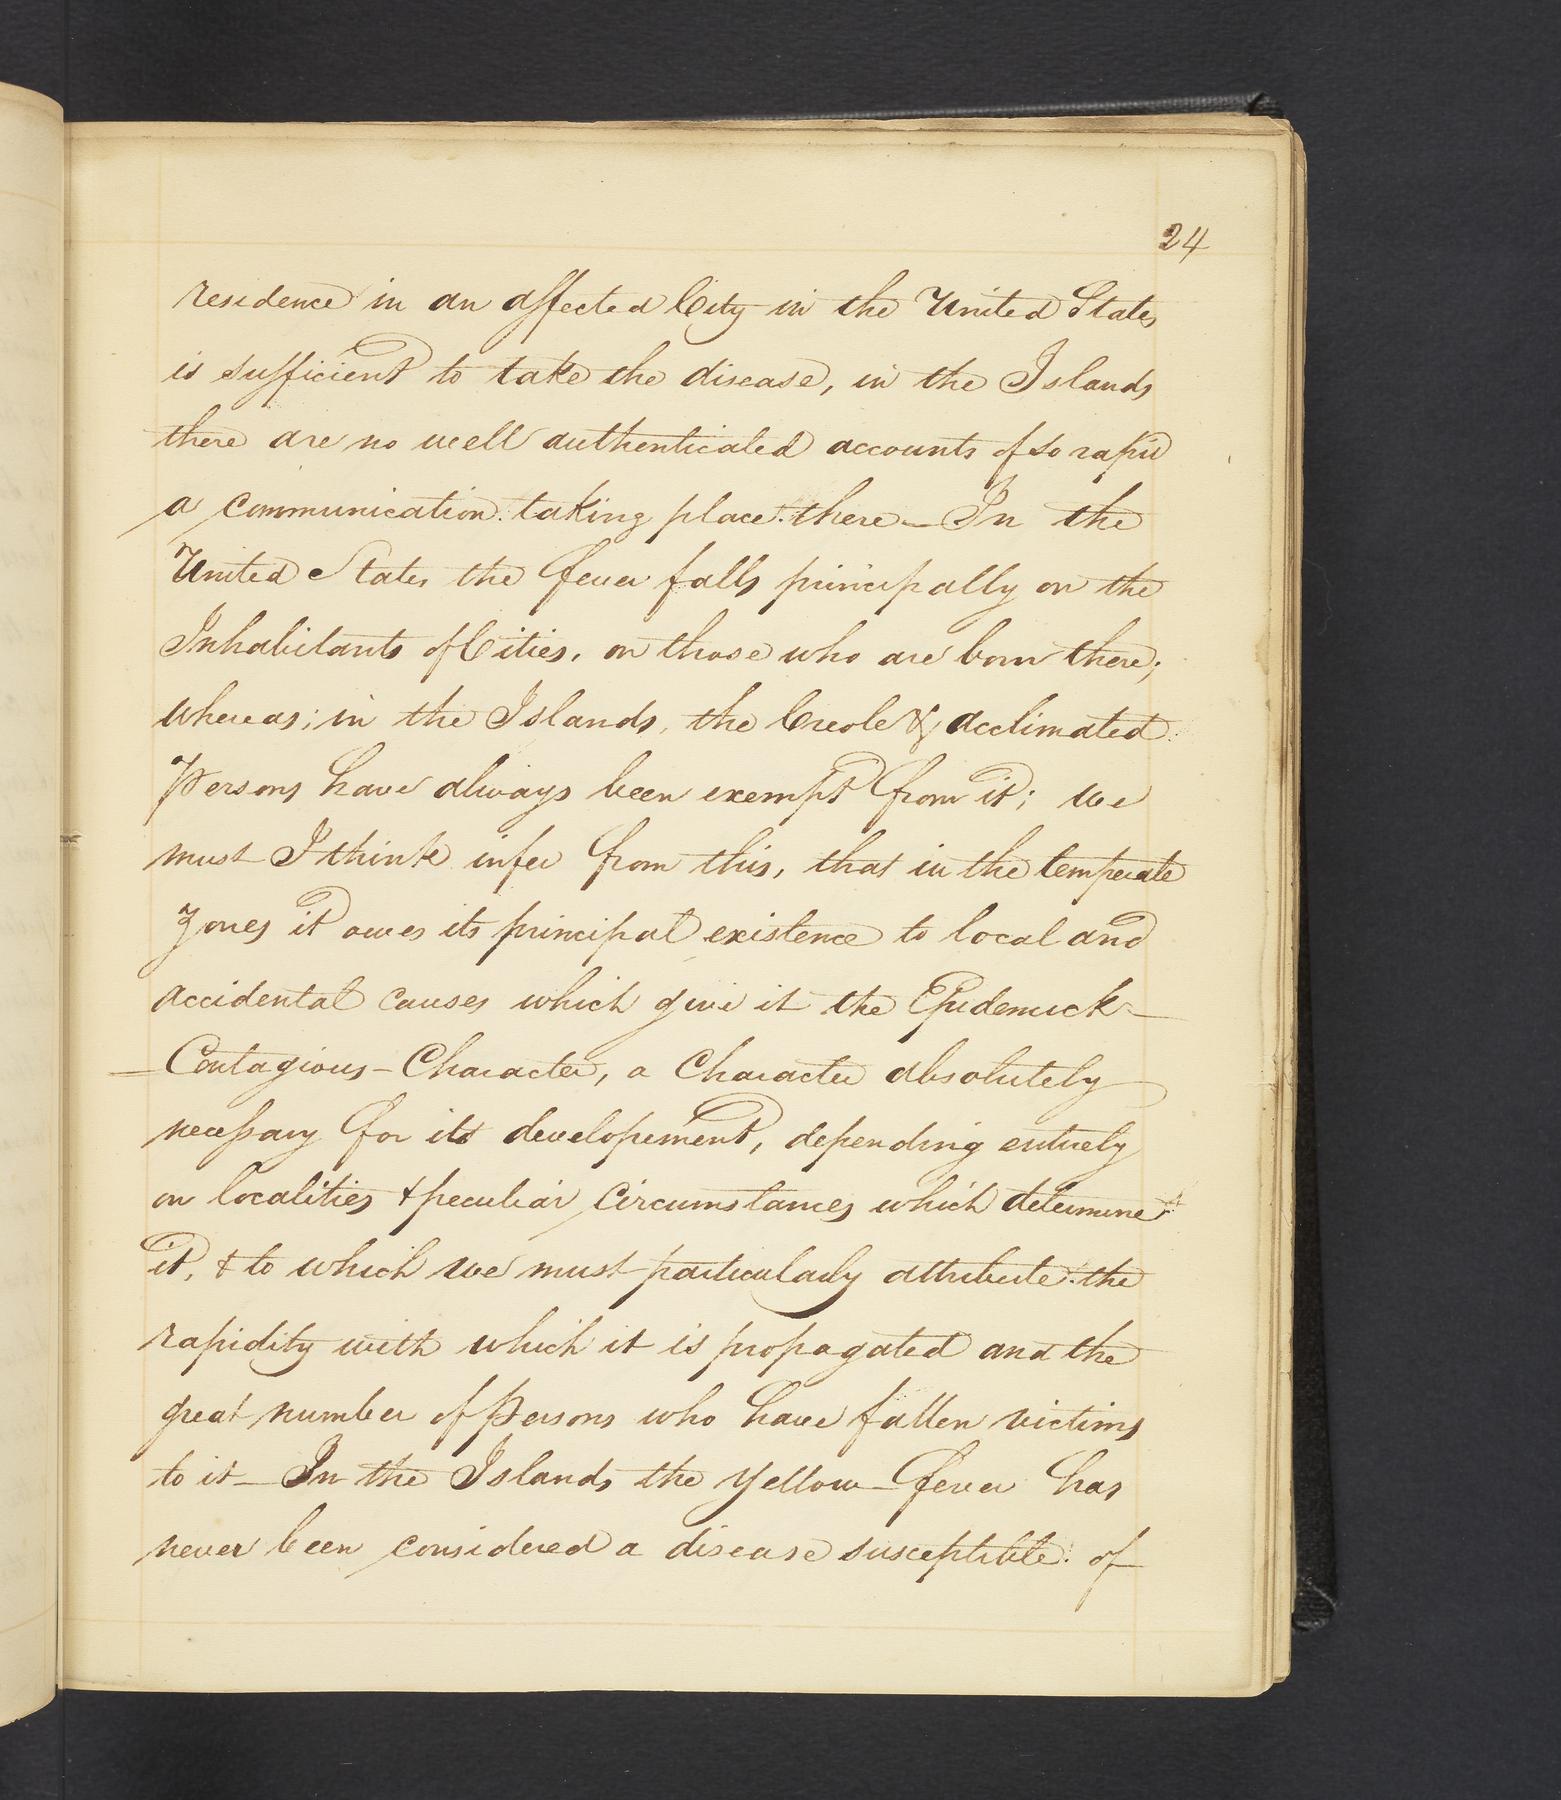 24
residence in an affected City in the United States
is sufficient to take the disease, in the Islands
there are no well authenticated accounts of so rapid
a communication taking place there — In the
United States the fever falls principally on the
Inhabitants of Cities, on those who are born there;
whereas; in the Islands, the Creole & acclimated
Persons have always been exempt from it; we
must I think infer from this, that in the temperate
Zones it owes its principal existence to local and
accidental causes which give it the Epidemick –
– Contagious – Character, a Character absolutely
necessary for its developement, depending entirely
on localities & peculiar circumstances which determine
it, & to which we must particularly attribute the
rapidity with which it is propagated and the
great number of Persons who have fallen victims
to it — In the Islands the Yellow – fever has
never been considered a disease susceptible of